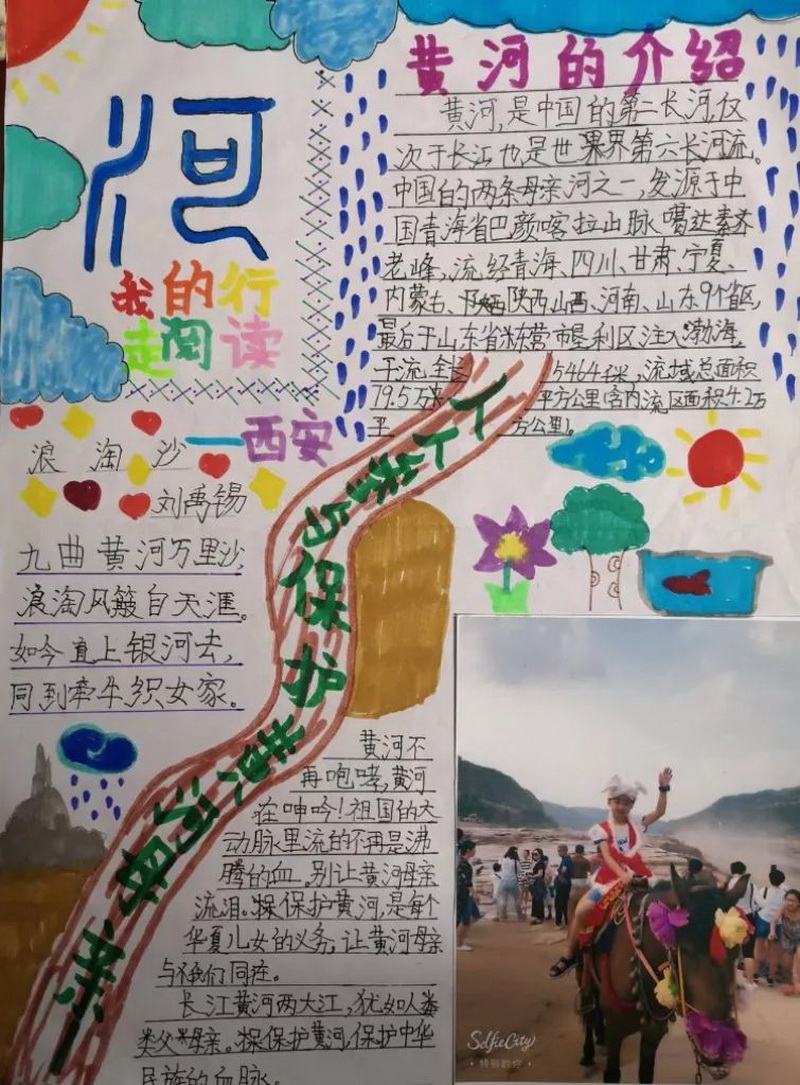 河
我的行
走阅读
—西安
黄河的介绍
黄河,是中国的第二长河,仅
次于长江也是世界第六长河流。
中国的两条母亲河之一,发源于中
国青海省巴颜喀拉山脉噶达素齐
老峰,流经青海、四川、甘肃、宁夏、
内蒙古、陕西、山西、河南、山东9个省区,
最后于山东省东营市垦利区注入渤海。
干流全长5464米,流域总面积
79.5万平方公里(含内流区面积4.2万
平方公里)。
浪 淘 沙
刘禹锡
九曲黄河万里沙,
浪淘风簸自天涯。
如今直上银河去,
同到牵牛织女家。
人人参与保护黄河母亲
黄河不
再咆哮,黄河
在呻吟!祖国的大
动脉里流的不再是沸
腾的血。别让黄河母亲
流泪。保护黄河,是每个
华夏儿女的义务,让黄河母亲
与我们同在。
长江黄河两大江,犹如人类
类父母亲。保护黄河,保护中华
民族的血脉。
SelfieCity
·特别的你·